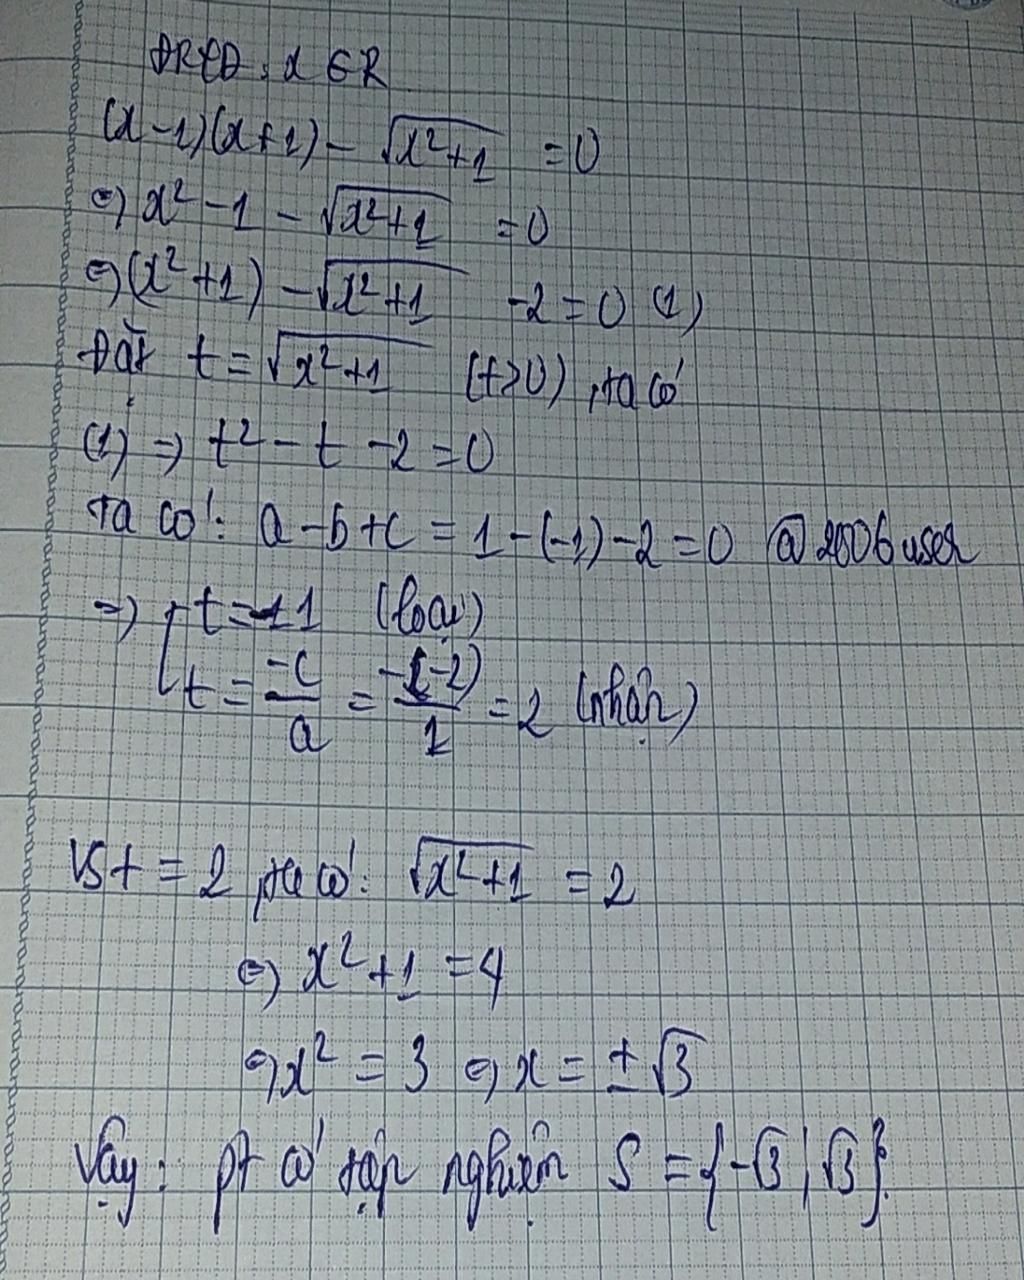 ĐKXĐ: x ∈ R
(x-1)(x+1) - √(x²+1) = 0
⇔ x² - 1 - √(x²+1) = 0
⇔ (x²+1) - √(x²+1) - 2 = 0 (1)
Đặt t = √(x²+1) (t>0), ta có
(1) ⇒ t² - t - 2 = 0
Ta có: a - b + c = 1 - (-1) - 2 = 0 @2006user
⇒ [ t = -1 (loại)
t = -c/a = -(-2)/1 = 2 (nhận)
Vs t = 2, ta có: √(x²+1) = 2
⇔ x² + 1 = 4
⇔ x² = 3 ⇔ x = ±√3
Vậy: pt có tập nghiệm S = {-√3; √3}.